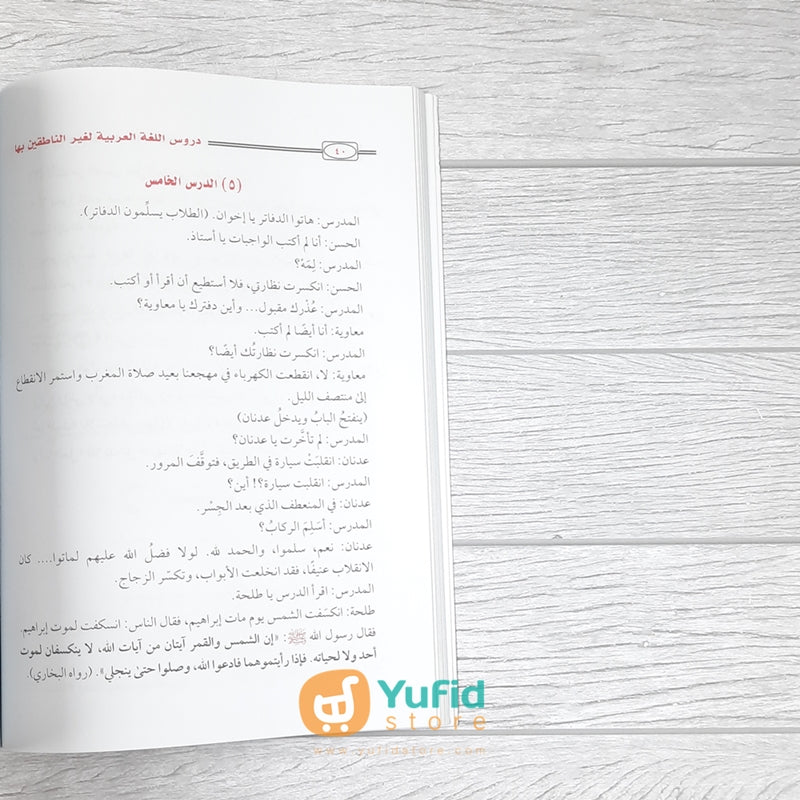 دروس اللغة العربية لغير الناطقين بها
٤٠
(٥) الدرس الخامس
المدرس: هاتوا الدفاتر يا إخوان. (الطلاب يسلِّمون الدفاتر).
الحسن: أنا لم أكتب الواجبات يا أستاذ.
المدرس: لِمَهْ؟
الحسن: انكسرت نظارتي، فلا أستطيع أن أقرأ أو أكتب.
المدرس: عُذْرك مقبول... وأين دفترك يا معاوية؟
معاوية: أنا أيضًا لم أكتب.
المدرس: انكسرت نظارتُك أيضًا؟
معاوية: لا، انقطعت الكهرباء في مهجعنا بعيد صلاة المغرب واستمر الانقطاع
إلى منتصف الليل.
(ينفتحُ البابُ ويدخلُ عدنان)
المدرس: لم تأخَّرت يا عدنان؟
عدنان: انقلبَتْ سيارة في الطريق، فتوقَّفَ المرور.
المدرس: انقلبت سيارة؟! أين؟
عدنان: في المنعطف الذي بعد الجِسْر.
المدرس: أسَلِمَ الركابُ؟
عدنان: نعم، سلموا، والحمد لله. لولا فضلُ الله عليهم لماتوا.... كان
الانقلاب عنيفًا، فقد انخلعت الأبواب، وتكسّر الزجاج.
المدرس: اقرأ الدرس يا طلحة.
طلحة: انكسَفت الشمس يوم مات إبراهيم، فقال الناس: انسكفت لموت إبراهيم.
فقال رسول الله ﷺ: «إن الشمس والقمر آيتان من آيات الله، لا ينكسفان لموت
أحد ولا لحياته. فإذا رأيتموهما فادعوا الله، وصلوا حتىٰ ينجلي». (رواه البخاري).
Yufid
store
www.yufidstore.com